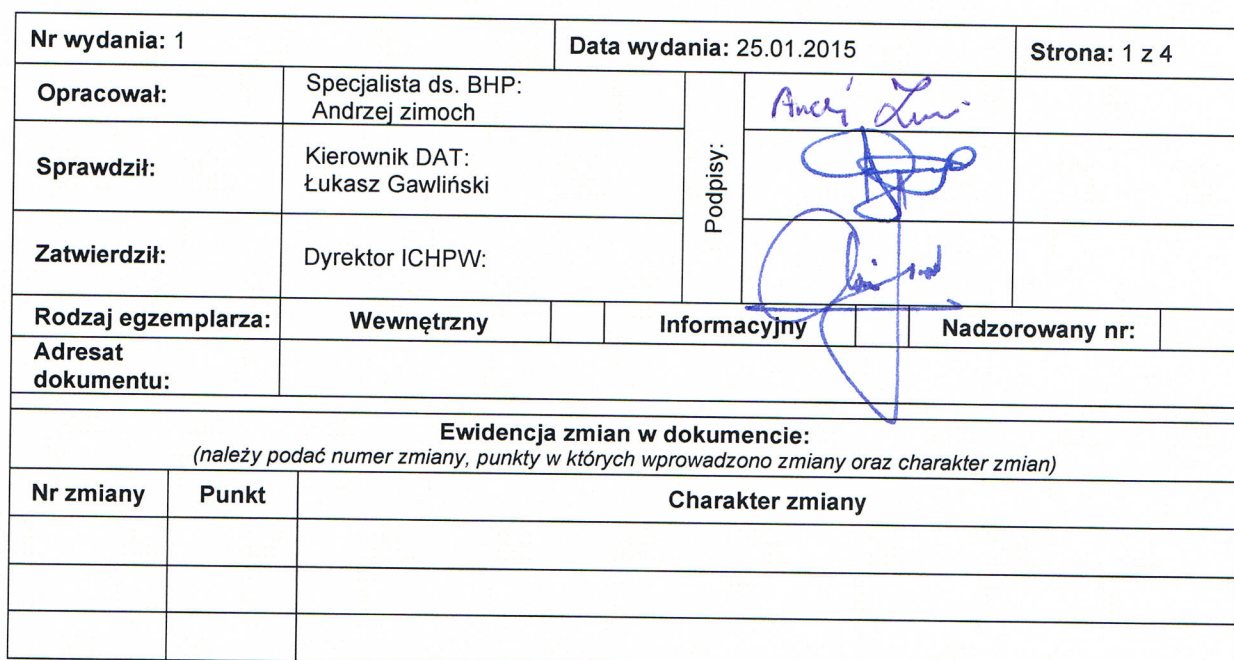 Nr wydania: 1 Data wydania: 25.01.2015 Strona: 1 z 4
Opracował: Specjalista ds. BHP:
Andrzej zimoch
Podpisy:
Sprawdził: Kierownik DAT:
Łukasz Gawliński
Zatwierdził: Dyrektor ICHPW:
Rodzaj egzemplarza: Wewnętrzny Informacyjny Nadzorowany nr:
Adresat
dokumentu:
Ewidencja zmian w dokumencie:
(należy podać numer zmiany, punkty w których wprowadzono zmiany oraz charakter zmian)
Nr zmiany Punkt Charakter zmiany